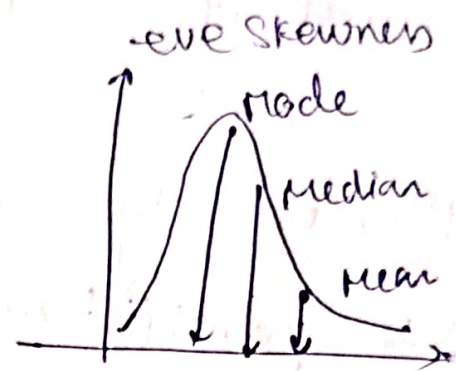 -eve Skewness
Mode
Median
Mean